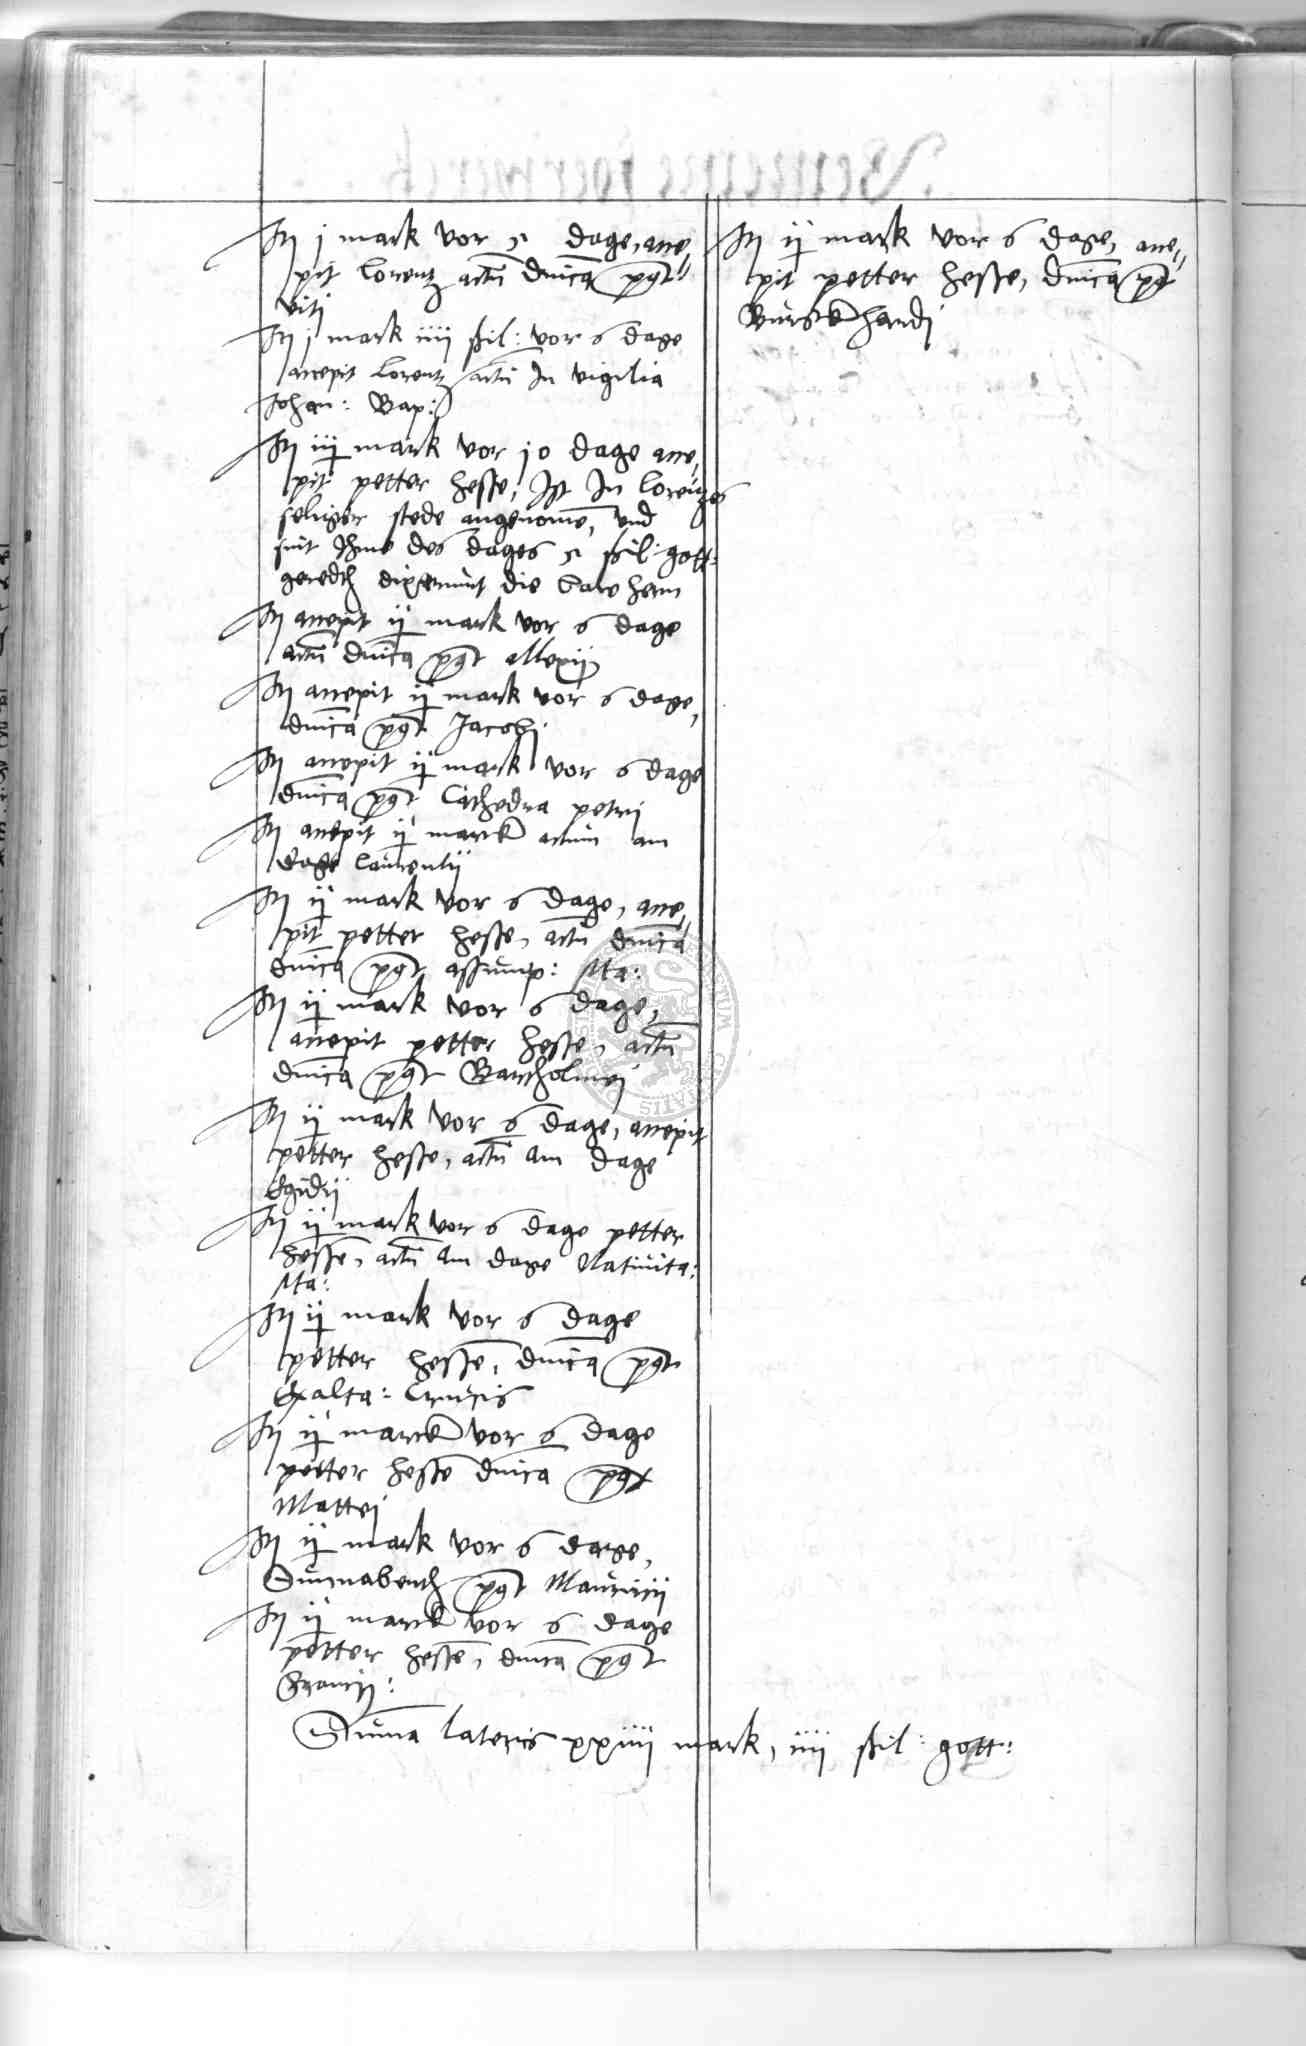 Itz j mark vor 5 dage, acce„
pit lorentz actū dnīca post
viti
Itz j mark iiij ßil: vor 6 dage
accepit lorentz actū In vigilia
Johan: Bap:
Itz iij mark vor jo dage acce„
pit petter hesse, Ist In lorentzes
seliger stede angenomē, und
sint Ihme des dages 5 ßil: gott:
geredth dixerunt die bare hern
Itz accepit ij mark vor 6 dage
actū dnīca post allexij
Itz accepit ij mark vor 6 dage,
dnīca post Jacobj
Itz accepit ij mark vor 6 dage
dnīca post Cathedra petrij
Itz accepit ij marck actum am
dage laurentij
Itz ij mark vor 6 dage, acce„
pit petter hesse, actū dnīca
dnīca post assump: Ma:
Itz ij mark vor 6 dage,
accepit petter hesse, actū
dnīca post Bartholmej
Itz ij mark vor 6 dage, accepit
petter hesse, actū am dage
Egidij
Itz ij mark vor 6 dage petter
hessē, actū am dage Nativita:
Ma:
Itz ij mark vor 6 dage
petter hessē, dnīca post
Exalta: Crucis
Itz ij marck vor 6 dage
petter hessē dnīca post
Mattej
Itz ij mark vor 6 dage,
Sunnabenth post Mauricij
Itz ij marck vor 6 dage
petter hessē, dnīca post
Francij:
Itz ij mark vor 6 dage, acce„
pit petter hesse, dnīca post
Burckhardj
Suma lateris xxiiij mark, iiij ßil: gott: